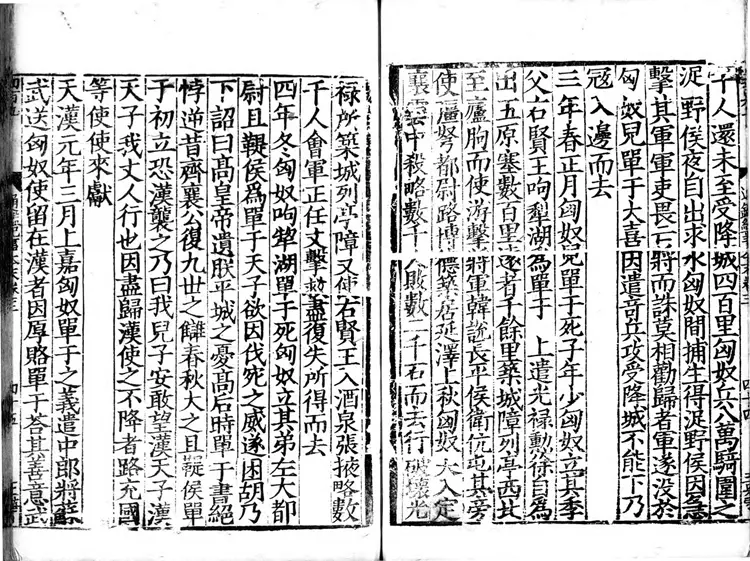 千人還未至受降城四百里匈奴兵八萬騎圍之
浞野侯夜自出求水匈奴間捕生得浞野侯因急
擊其軍軍吏畏亡將而誅莫相勸歸者軍遂没於
匈奴兒單于大喜因遣竒兵攻受降城不能下乃
冦入邊而去
三年春正月匈奴兒單于死子年少匈奴立其季
父右賢王呴犁湖爲單于 上遣光禄勲徐自爲
出五原塞數百里逺者千餘里築城障列亭西北
至廬朐而使游擊將軍韓說長平侯衛伉屯其旁
使彊弩都尉路博德築居延澤上秋匈奴大入定
襄雲中殺略數千人敗數二千石而去行破壞光
禄所築城列亭障又使右賢王入酒泉張掖略數
千人會軍正任文擊救盡復失所得而去
四年冬匈奴呴犂湖單于死匈奴立其弟左大都
尉且鞮侯爲單于天子欲因伐宛之威遂困胡乃
下詔曰髙皇帝遺朕平城之憂髙后時單于書絶
悖逆昔齊襄公復九世之讎春秋大之且鞮侯單
于初立恐漢襲之乃曰我兒子安敢望漢天子漢
天子我丈人行也因盡歸漢使之不降者路充國
等使使來獻
天漢元年三月上嘉匈奴單于之義遣中郎將蘇
武送匈奴使留在漢者因厚賂單于荅其善意武